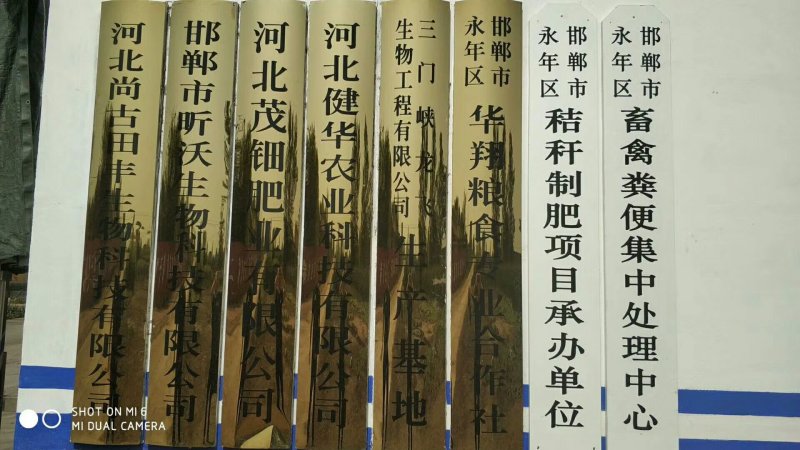 河北尚古田丰生物科技有限公司
邯郸市昕沃生物科技有限公司
河北茂钿肥业有限公司
河北健华农业科技有限公司
三门峡龙飞
生物工程有限公司
生产基地
邯郸市
永年区
华翔粮食专业合作社
邯郸市
永年区
秸秆制肥项目承办单位
邯郸市
永年区
畜禽粪便集中处理中心
SHOT ON MI 6
MI DUAL CAMERA